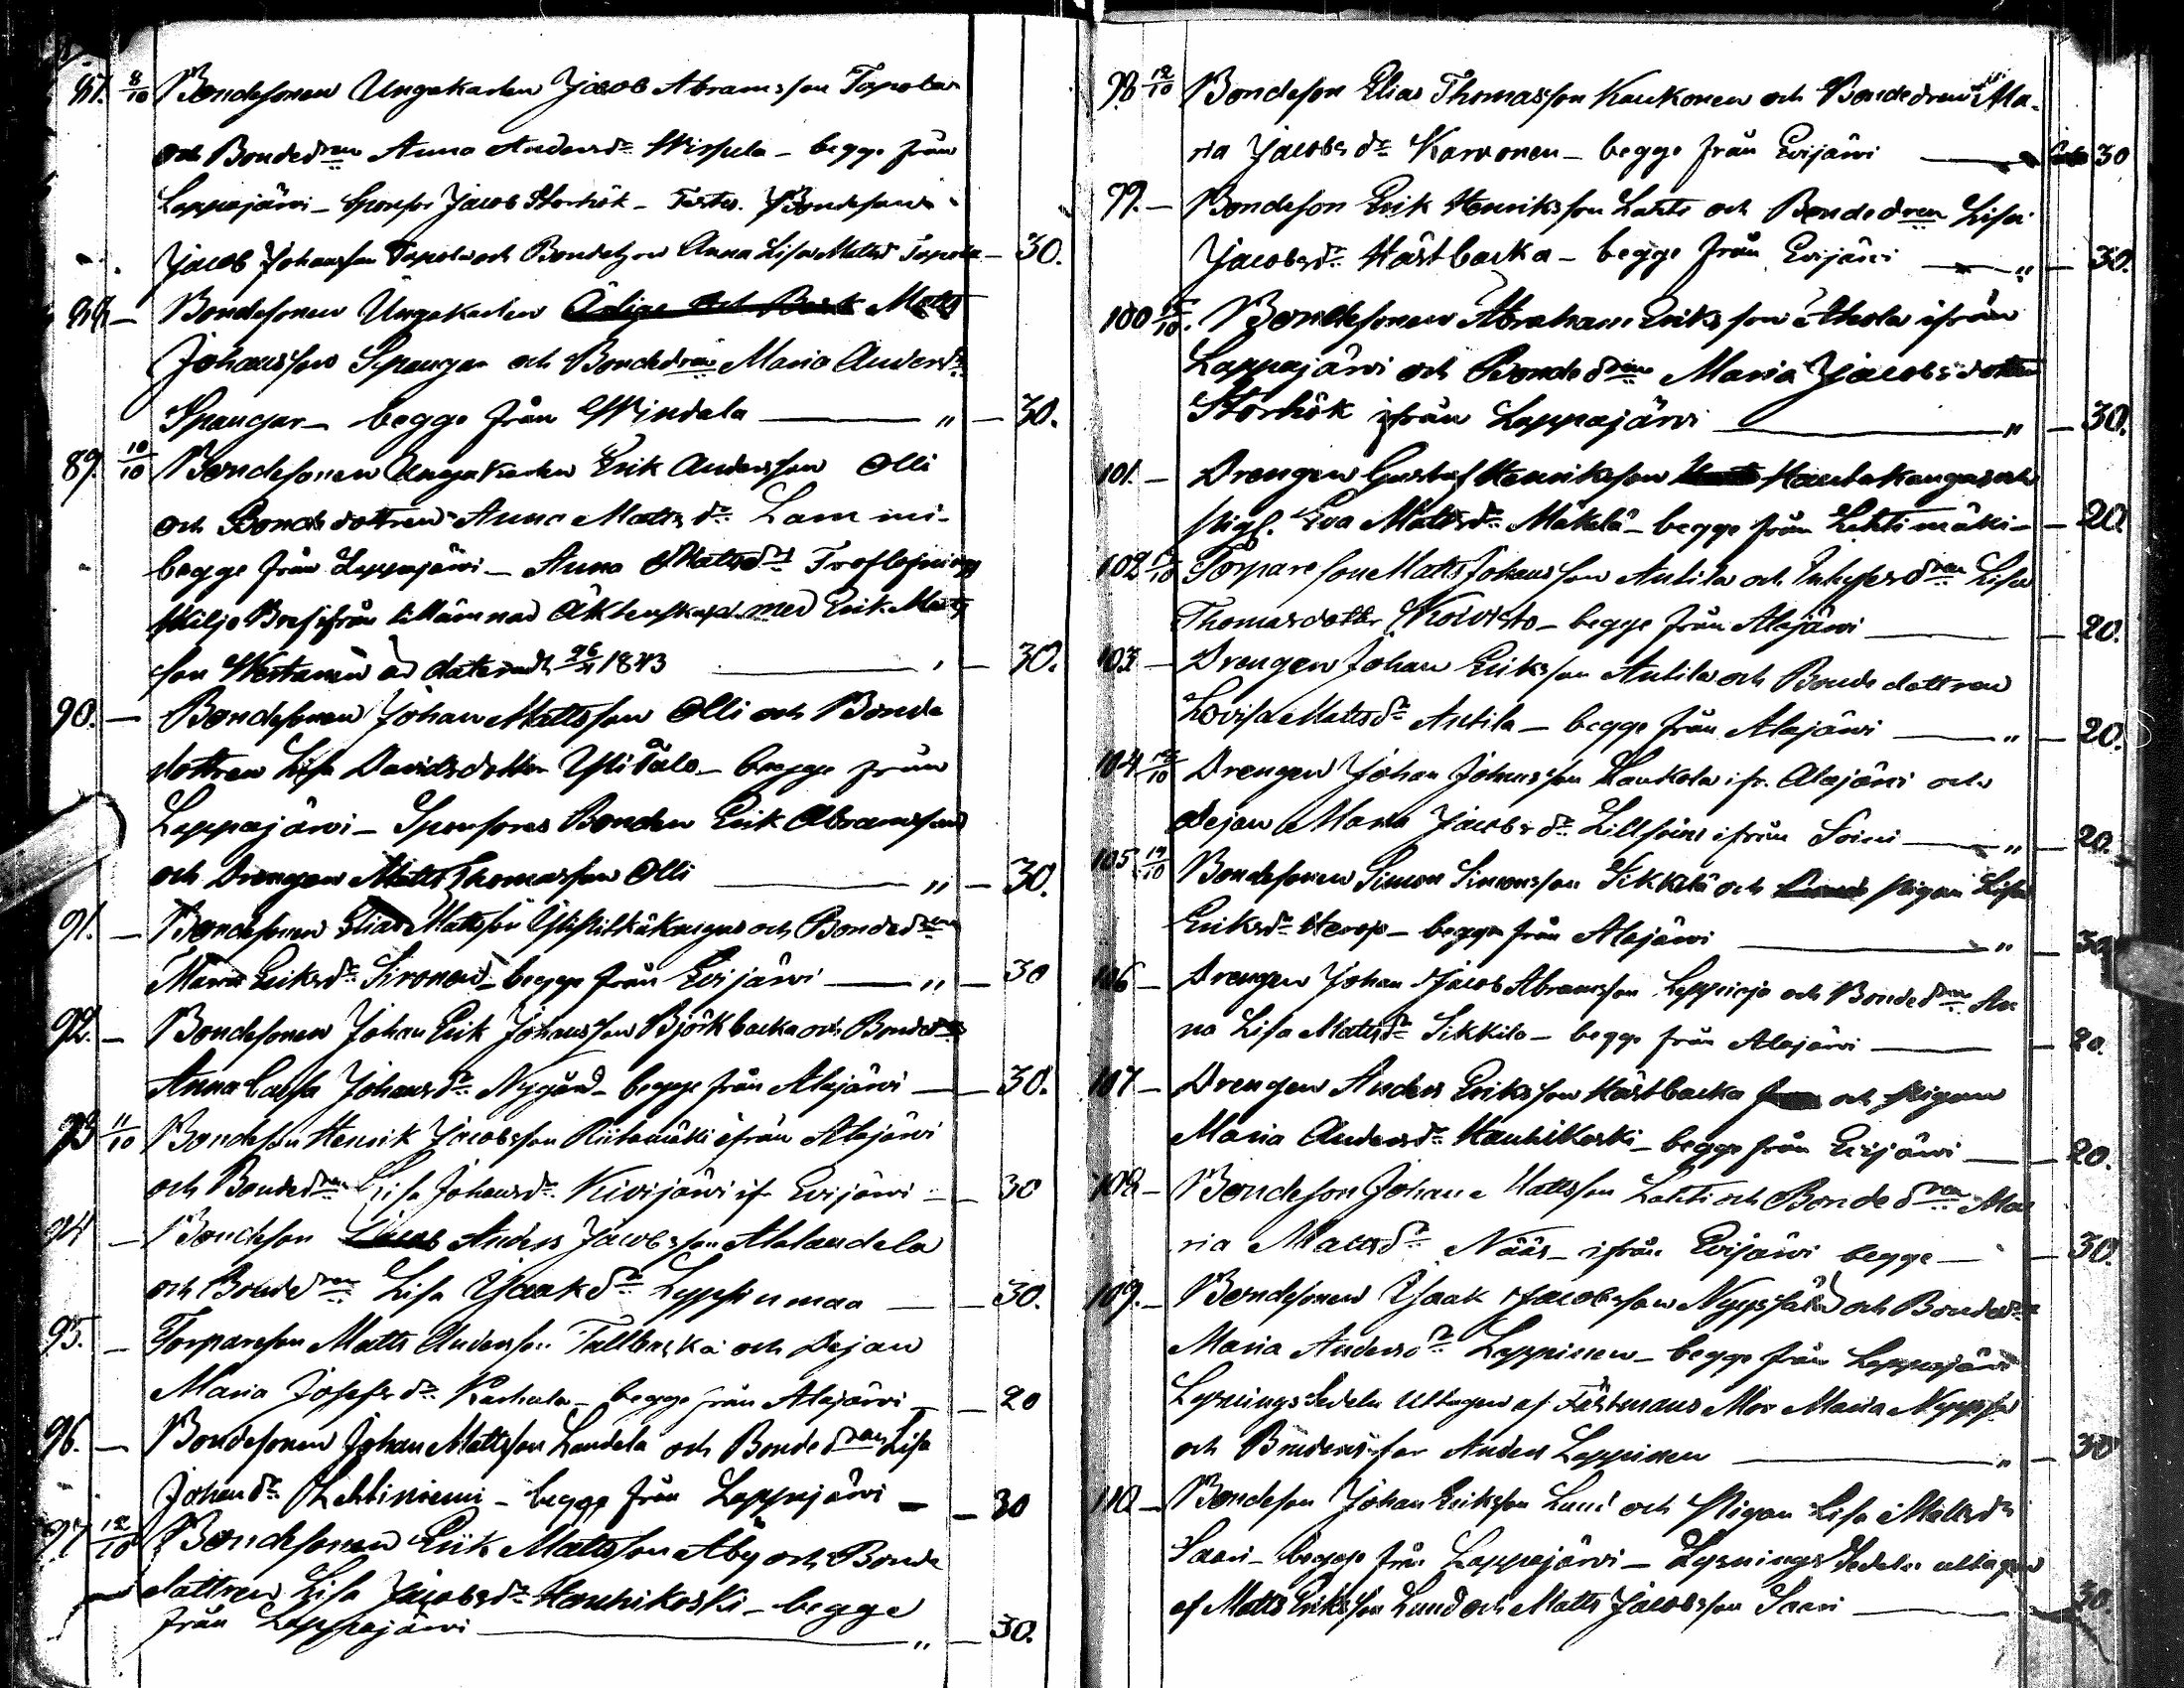 87. 8/10 Bondesonen Ungakarlen Jacob Abramsson Tapola
och Bonded:ren Anna Andersd:r Wirkula - begge från
Lappajärvi - Sponsor Jacob Storhök - Testes. Bondesonen
Jacob Johansson Tapola och Bondehu Anna Lisa Mattsd Tapola - 30.
88 - Bondesonen Ungakarlen Matts
Johansson Spangar och Bonded:ren Maria Andersd:r
Spangar - begge från Windala " - 30.
89. 10/10 Bondesonen Ungakarlen Erik Andersson Olli
och Bondedottren Anna Mattsd:r Lammi -
begge från Lappajärvi - Anna Mattsd:rs
Brefifrån tillämnad Äktenskap med Erik Matts
son Westanen är dateradt 1843 " - 30.
90. - Bondesonen Johan Mattsson Olli och Bonde
dottren Lisa Davidsdotter YliTalo - begge från
Lappajärvi - Sponsores Bonden Erik Abramsson
och Drengen Matts Thomasson Olli " - 30.
91. - Bondesonen Elias Mattsson och Bonded:ren
Maria Eriksd:r Sironen - begge från Evijärvi " - 30
92. - Bondesonen Johan Erik Johansson Björkbacka och Bonded:ren
Anna Caisa Johansd:r Nygård - begge från Alajärvi - 30.
93 11/10 Bondeson Henrik Jacobsson Riitamäki ifrån Alajärvi
och Bonded:ren Lisa Johansd:r Kivijärvi if. Evijärvi - 30
94 - Bondeson Jacob Anders Jacobsson Alalandela
och Bonded:ren Lisa Isaaksd:r Leppinmaa - 30.
95. - Torpareson Matts Andersson Tallbacka och Dejan
Maria Josefsd:r Karhula - begge från Alajärvi - 20
96. - Bondesonen Johan Mattsson Landela och Bonded:ren Lisa
Johand:r Lehtiniemi - begge från Lappajärvi - 30
97 12/10 Bondesonen Erik Mattsson Åby och Bonde
dottren Lisa Jacobsd:r Hauhikoski - begge
från Lappajärvi " - 30.
98 12/10 Bondeson Elias Thomasson Kaukonen och Bondedren Ma-
ria Jacobsd:r Karvonen - begge från Evijärvi 30
99. - Bondeson Erik Henriksson Lahti och Bonded:ren Lisa
Jacobsd:r Hästbacka - begge från Evijärvi " - 30.
100 /10. Bondesonen Abraham Eriksson Ahola ifrån
Lappajärvi och Bonded:ren Maria Jacobsdotter
Storhök ifrån Lappajärvi " - 30.
101. - Drengen Gustaf Henriksson Hautakangas och
Pig. Eva Mattsd:r Mäkelä - begge från Lehtimäki - 20.
102 /10 Torpareson Matts Johansson Antila och Inhysesd:ren Lisa
Thomasdotter Koivisto - begge från Alajärvi - 20.
103 - Drengen Johan Eriksson Antila och Bondedottren
Lovisa Mattsd:r Antila - begge från Alajärvi " - 20.
104 /10 Drengen Johan Johansson Laukola ifr. Alajärvi och
Dejan Maria Jacobsd:r Lillsoini ifrån Soini " - 20.
105 /10 Bondesonen Simon Simonsson Sikkilä och Pigan Lisa
Eriksd:r Herop - begge från Alajärvi " - 30.
106 - Drengen Johan Jacob Abramsson Leppioja och Bonded:ren An
na Lisa Mattsd:r Sikkila - begge från Alajärvi - 20.
107 - Drengen Anders Eriksson Hästbacka och Pigan
Maria Andersd:r Hauhikoski - begge från Evijärvi - 20.
108 - Bondeson Johan Mattsson Lahti och Bonded:ren Ma
ria Mattsd:r Nääs - ifrån Evijärvi begge - 30.
109. - Bondesonen Isaak Jacobsson Nyyssölä och Bonded:ren
Maria Andersd:r Lappinen - begge från Lappajärvi
LysningsSedeln Uttagen af Fästmans Mor Maria
och Brudens far Anders Lappinen " - 30
110 - Bondeson Johan Eriksson Lund och Pigan Lisa Mattsd:r
Saari - begge från Lappajärvi - LysningsSedeln uttagen
af Matts Eriksson Lund och Matts Jacobsson Saari - 30.